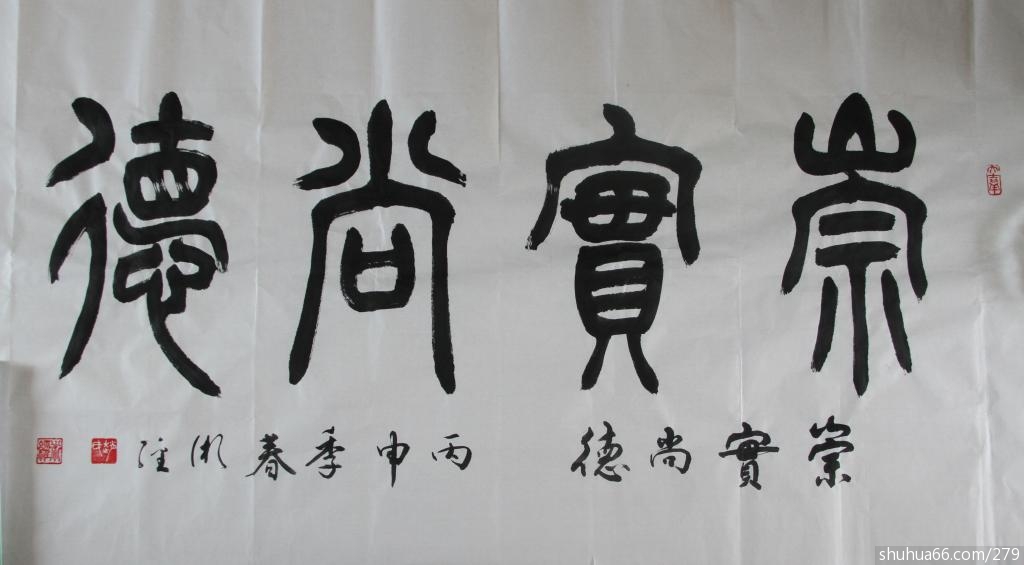 崇實尚德
崇實尚德
丙申季春
shuhua66.com/279